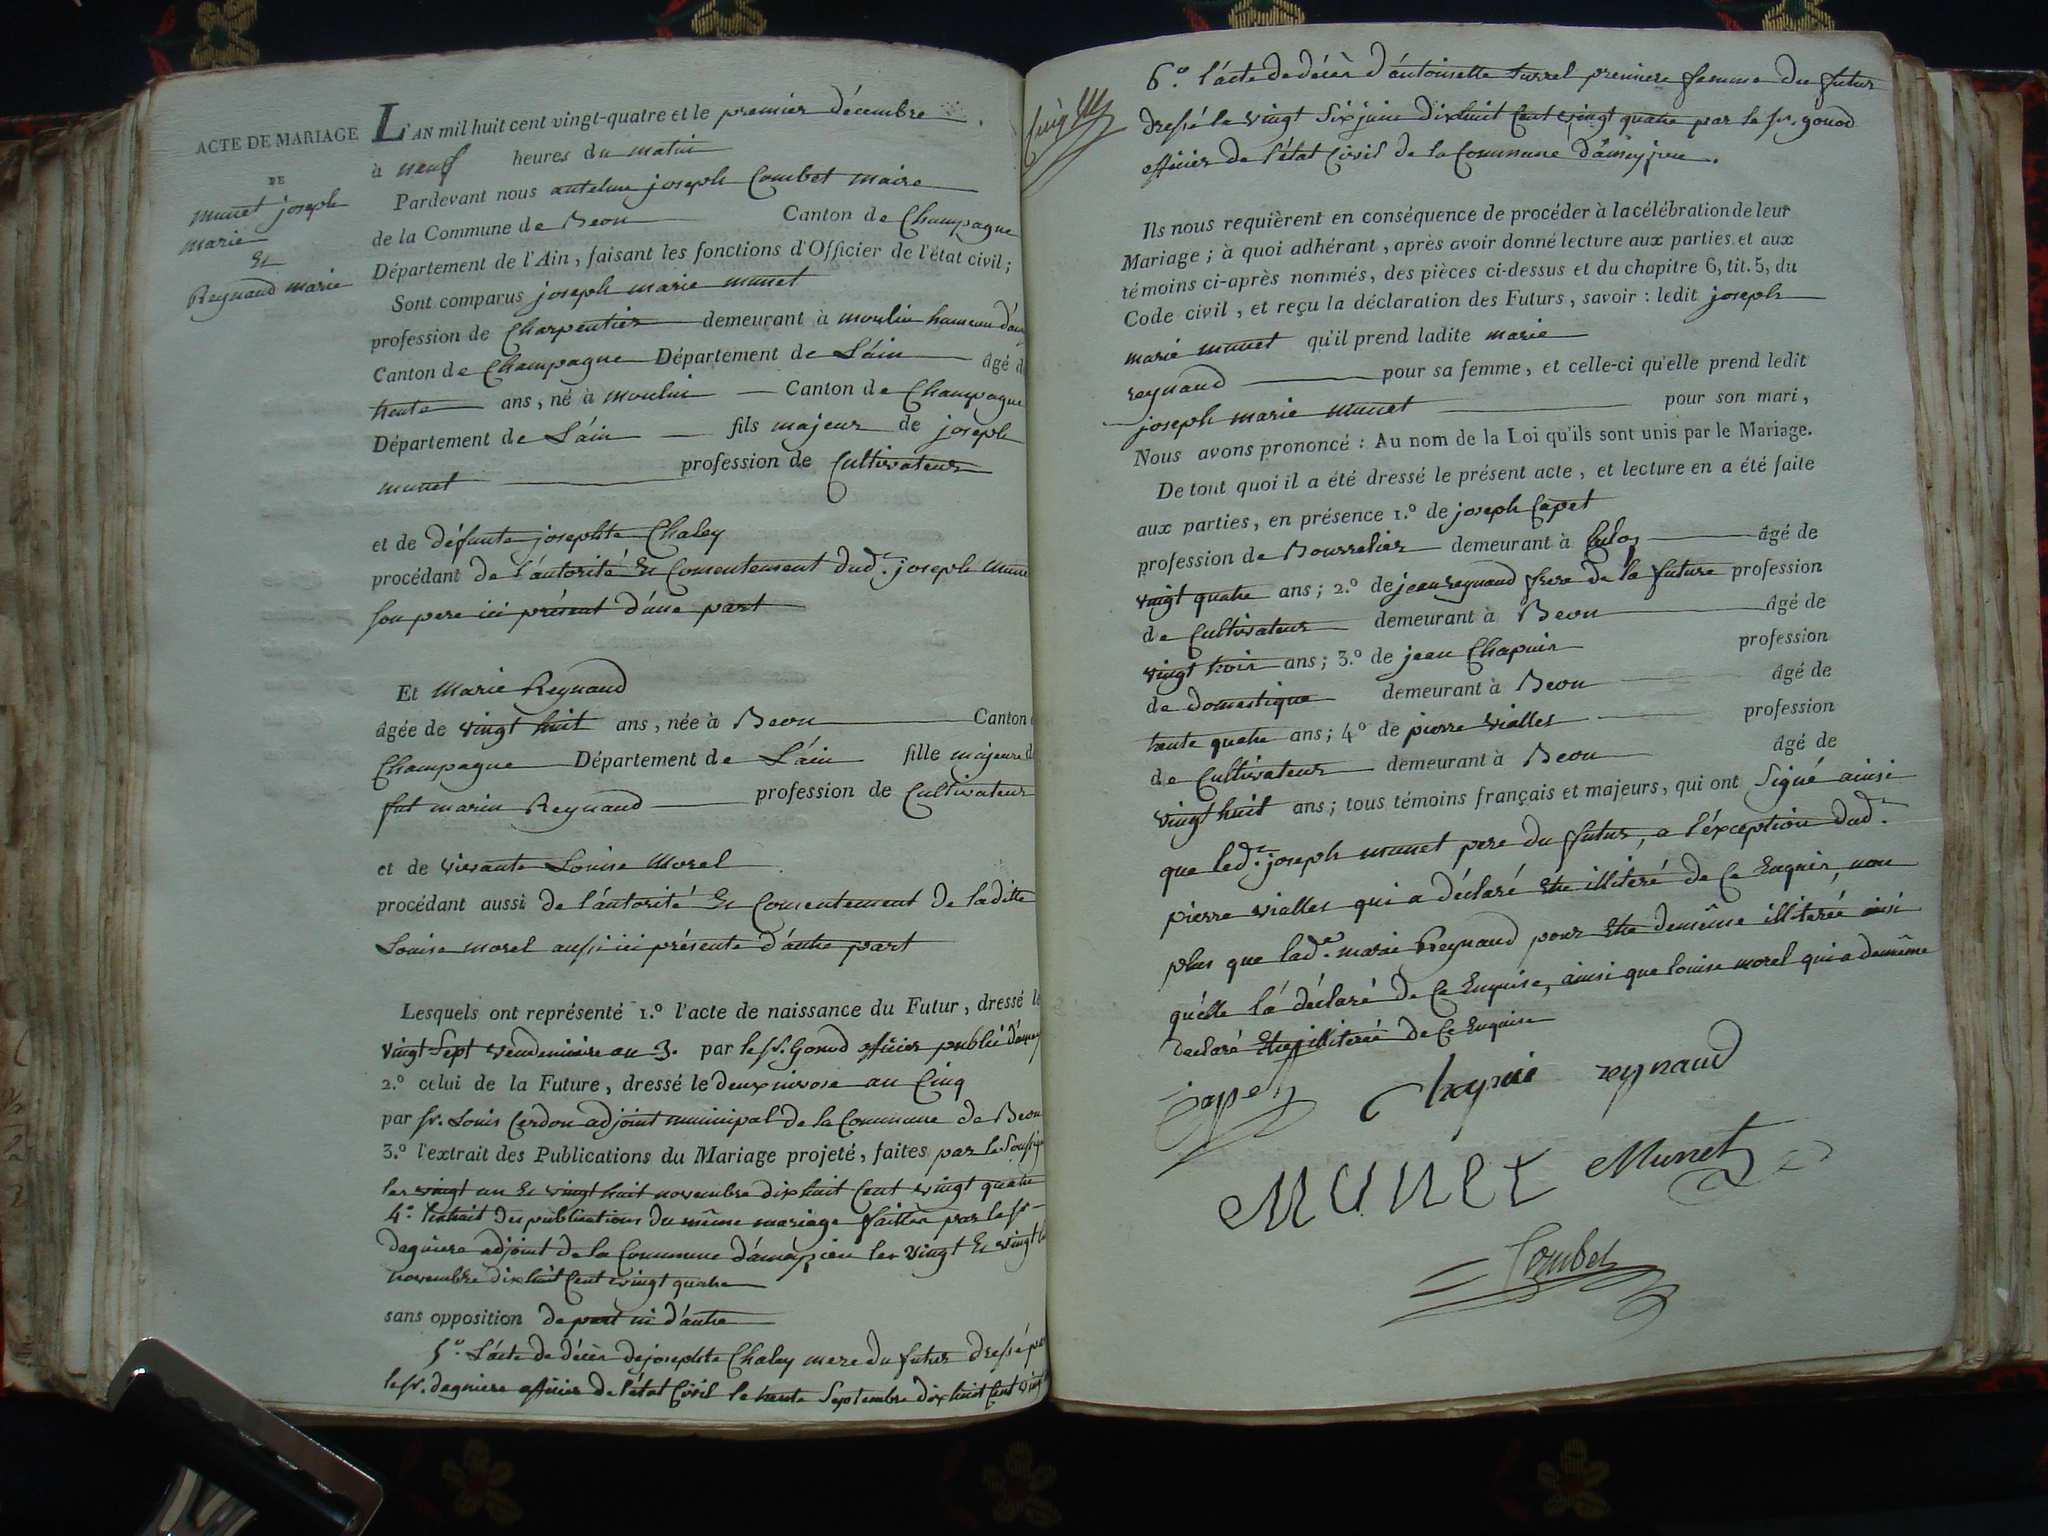 ACTE DE MARIAGE
DE
munet joseph
marie
Et
Reynaud marie
L'AN mil huit cent vingt-quatre et le premier décembre
à neuf heures du matin
Pardevant nous antelme joseph Combet maire
de la Commune de Beon Canton de Champagne
Département de l'Ain, faisant les fonctions d'Officier de l'état civil ;
Sont comparus joseph marie munet
profession de Charpentier demeurant à moulin hameau
Canton de Champagne Département de L'áin âgé d
trente ans, né à moulin Canton de Champagne
Département de L'áin fils majeur de joseph
munet profession de Cultivateur
et de défunte josephte Chaley
procédant de l'áutorité Et Consentement dud.t joseph mune
son pere ici présent d'úne part
Et Marie Reynaud
âgée de vingt huit ans, née à Beon Canton
Champagne Département de L'áin fille majeure d
fut marin Reynaud profession de Cultivateur
et de vivante Louise Morel
procédant aussi de l'áutorité Et Consentement de ladite
Louise morel aussi ici présente d'áutre part
Lesquels ont représenté 1.º l'acte de naissance du Futur, dressé le
vingt Sept vendemiaire an 3. par le Sr. Gonod officier public
2.º celui de la Future, dressé le deux nivose an Cinq
par Sr. Louis Cerdon adjoint municipal de la Commune de Beon
3.º l'extrait des Publications du Mariage projeté, faites par le
les vingt un Et vingt huit novembre dixhuit Cent vingt quatre
4.º L'extrait des publications du même mariage faittes par le Sr
dagniere adjoint de la Commune d'ameyzieu les vingt Et vingt
novembre dixhuit Cent vingt quatre
sans opposition de part ni d'áutre
5.º L'ácte de décès de josephte Chaley mere du futur dressé par
le Sr. dagniere officier de l'état Civil le trente Septembre dixhuit Cent vingt
6.º l'ácte de décès d'ántoinette turrel premiere femme du futur
dressé le vingt Six juin dixhuit Cent vingt quatre par le Sr. gonod
officier de l'état Civil de la Commune
Ils nous requièrent en conséquence de procéder à la célébration de leur
Mariage ; à quoi adhérant, après avoir donné lecture aux parties et aux
témoins ci-après nommés, des pièces ci-dessus et du chapitre 6, tit. 5, du
Code civil, et reçu la déclaration des Futurs, savoir : ledit joseph
marie munet qu'il prend ladite marie
reynaud pour sa femme, et celle-ci qu'elle prend ledit
joseph marie munet pour son mari,
Nous avons prononcé : Au nom de la Loi qu'ils sont unis par le Mariage.
De tout quoi il a été dressé le présent acte, et lecture en a été faite
aux parties, en présence 1.º de joseph Capet
profession de Bourrelier demeurant à Culoz âgé de
vingt quatre ans ; 2.º de jean reynaud frere de la future profession
de Cultivateur demeurant à Beon âgé de
vingt trois ans ; 3.º de jean Chapuis profession
de domestique demeurant à Beon âgé de
trente quatre ans ; 4º de pierre vialles profession
de Cultivateur demeurant à Beon âgé de
vingt huit ans ; tous témoins français et majeurs, qui ont Signé ainsi
que led.t joseph munet pere du futur, a l'éxception dud.t
pierre vialles qui a déclaré Etre illiteré de Ce Enquis, non
plus que lad.e marie Reynaud pour Etre demême illiterée ainsi
qu'élle l'á déclaré de Ce Enquise, ainsi que louise morel qui a demême
declaré Etre illiterée de Ce Enquise
Capet Chapuis reynaud
MUNET Munet
Combet